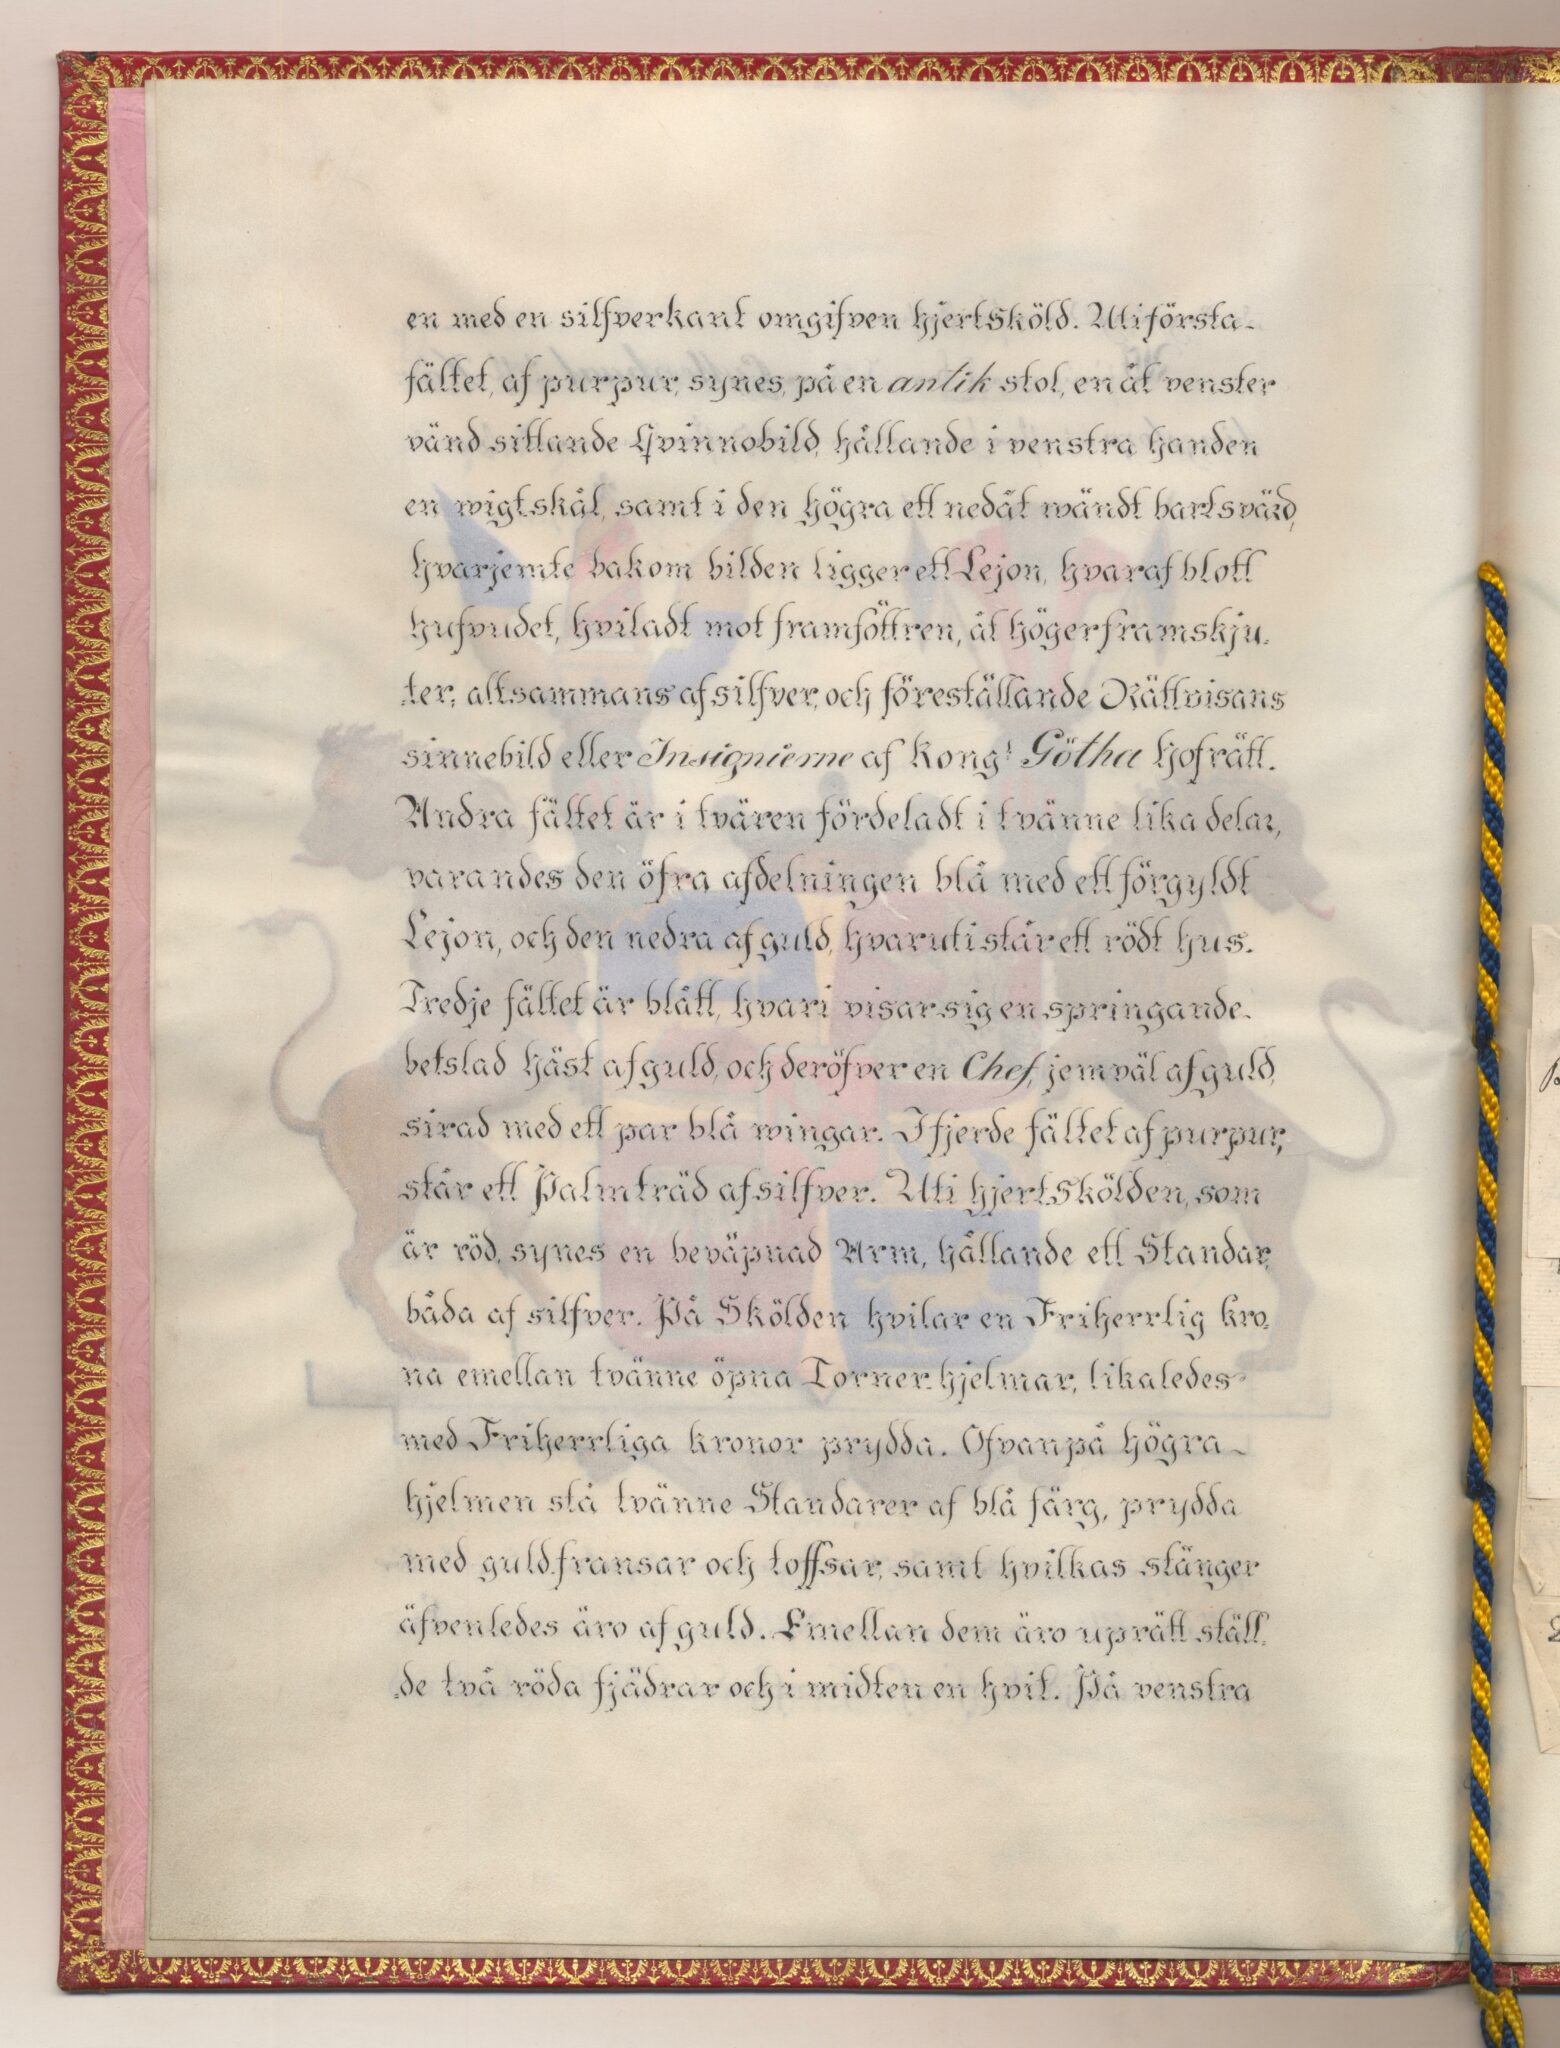 en med en silfverkant omgifven hjertSköld. Uti första
fältet, af purpur, synes, på en antik stol, en åt venster
vänd sittande Qvinnobild, hållande i venstra handen
en wigtskål, samt i den högra ett nedåt wändt bart svärd,
hvarjemte bakom bilden ligger ett Lejon, hvaraf blott
hufvudet, hviladt mot framföttren, åt höger framskju-
ter; altsammans af silfver, och föreställande Rättvisans
sinnebild eller Insignierne af Kongl Götha Hofrätt.
Andra fältet är i tvären fördeladt i tvänne lika delar,
varandes den öfra afdelningen blå med ett förgyldt
Lejon, och den nedra af guld, hvaruti står ett rödt hus.
Tredje fältet är blått, hvari visar sig en springande
betslad häst af guld, och deröfver en Chef, jemväl af guld,
sirad med ett par blå wingar. I fjerde fältet af purpur,
står ett Palmträd af silfver. Uti hjertSkölden, som
är röd, synes en beväpnad Arm, hållande ett Standar,
båda af silfver. På Skölden hvilar en Friherrlig kro-
na emellan tvänne öpna Torner-hjelmar, likaledes
med Friherrliga kronor prydda. Ofvanpå högra
hjelmen stå tvänne Standarer af blå färg, prydda
med guldfransar och toffsar, samt hvilkas stänger
äfvenledes äro af guld. Emellan dem äro uprätt ställ-
de två röda fjädrar och i midten en hvit. På venstra